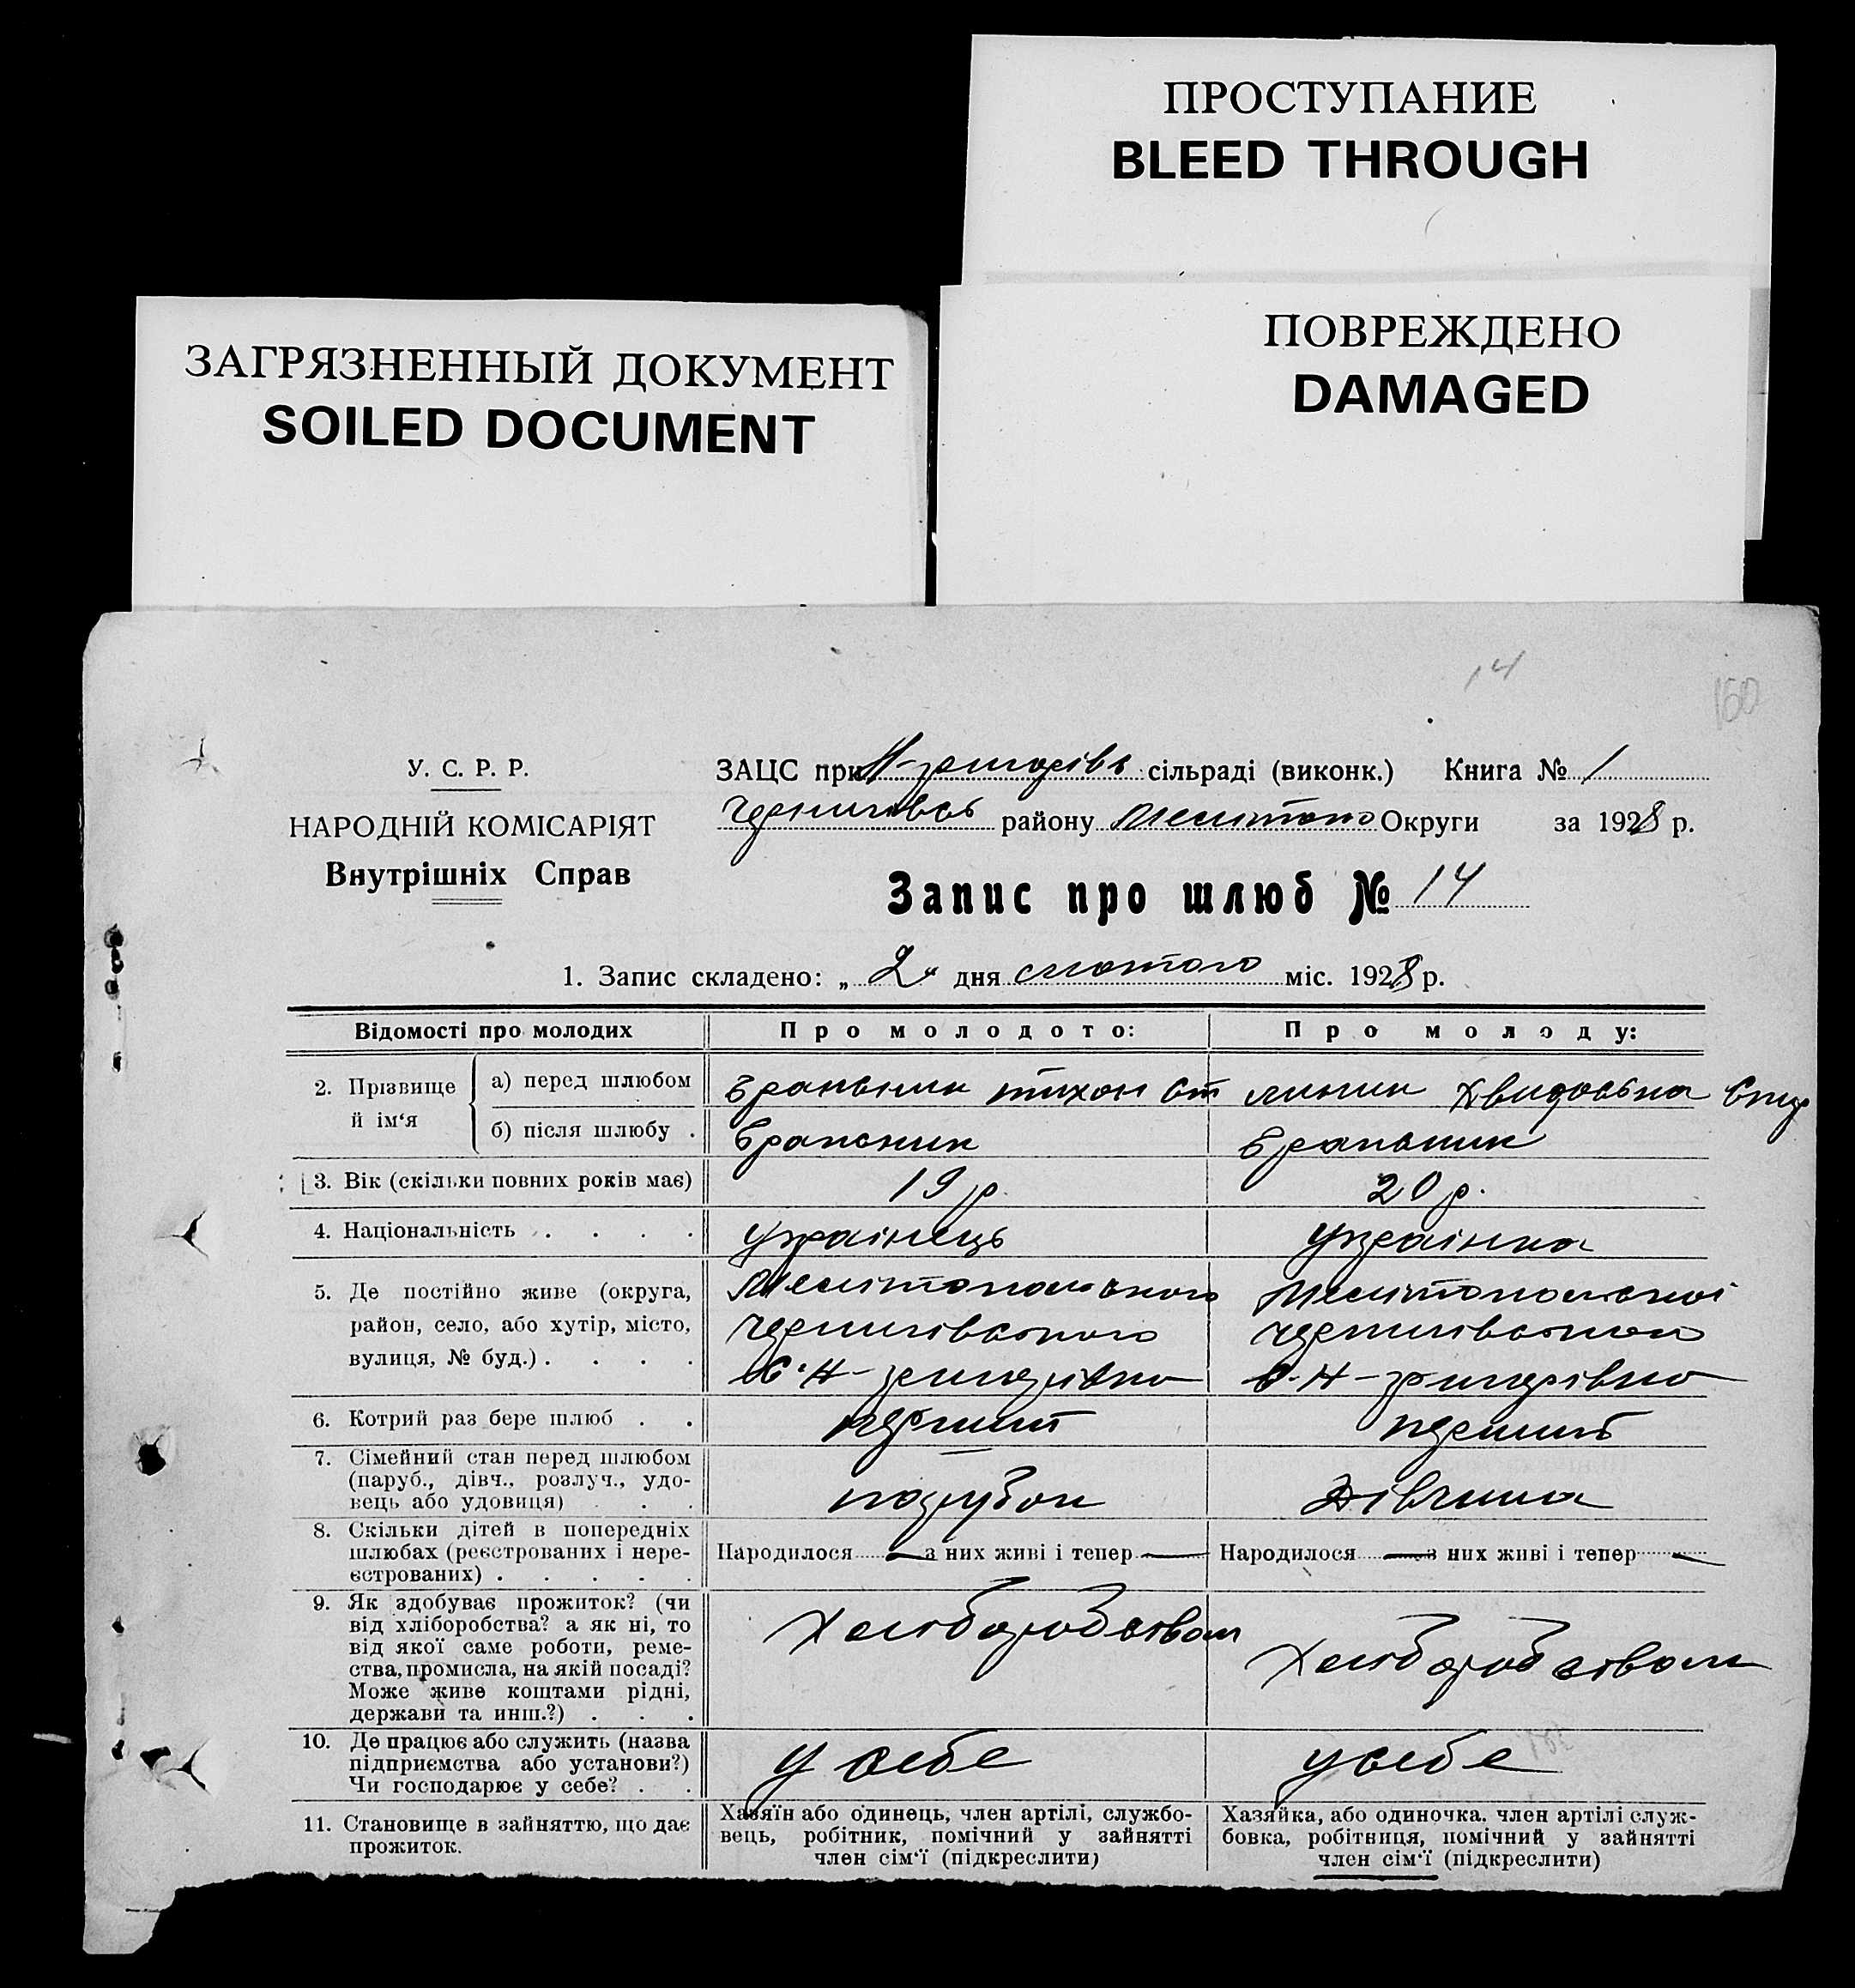 ПРОСТУПАНИЕ
BLEED THROUGH
ПОВРЕЖДЕНО
DAMAGED
ЗАГРЯЗНЕННЫЙ ДОКУМЕНТ
SOILED DOCUMENT
14
150
У. С. Р. Р.
НАРОДНІЙ КОМІСАРІЯТ
Внутрішніх Справ
ЗАЦС при сільраді (виконк.) Книга № 1
району Округи за 1928 р.
Запис про шлюб № 14
1. Запис складено: „ 2 " дня лютого міс. 1928 р.
Відомості про молодих Про молодого: Про молоду:
2. Прізвище й ім'я а) перед шлюбом тихон
б) після шлюбу .
3. Вік (скільки повних років має) 19 р. 20 р.
4. Національність . . . . українець українка
5. Де постійно живе (округа, Мелітопольського Мелітопольської
район, село, або хутір, місто, Чернигівського
вулиця, № буд.) . . . .
6. Котрий раз бере шлюб . . перший перший
7. Сімейний стан перед шлюбом
(паруб., дівч., розлуч., удо-
вець або удовиця) . . . парубок дівчина
8. Скільки дітей в попередніх
шлюбах (реєстрованих і нере-
єстрованих) . . . . . Народилося — з них живі і тепер — Народилося — з них живі і тепер —
9. Як здобуває прожиток? (чи
від хліборобства? а як ні, то
від якої саме роботи, реме-
ства, промисла, на якій посаді?
Може живе коштами рідні,
держави та инш.?) . . . Хліборобством Хліборобством
10. Де працює або служить (назва
підприємства або установи?)
Чи господарює у себе? . . у себе у себе
11. Становище в зайняттю, що дає
прожиток.
Хазяїн або одинець, член артілі, службо-
вець, робітник, помічний у зайнятті
член сім'ї (підкреслити)
Хазяйка, або одиночка, член артілі служ-
бовка, робітниця, помічний у зайнятті
член сім'ї (підкреслити)